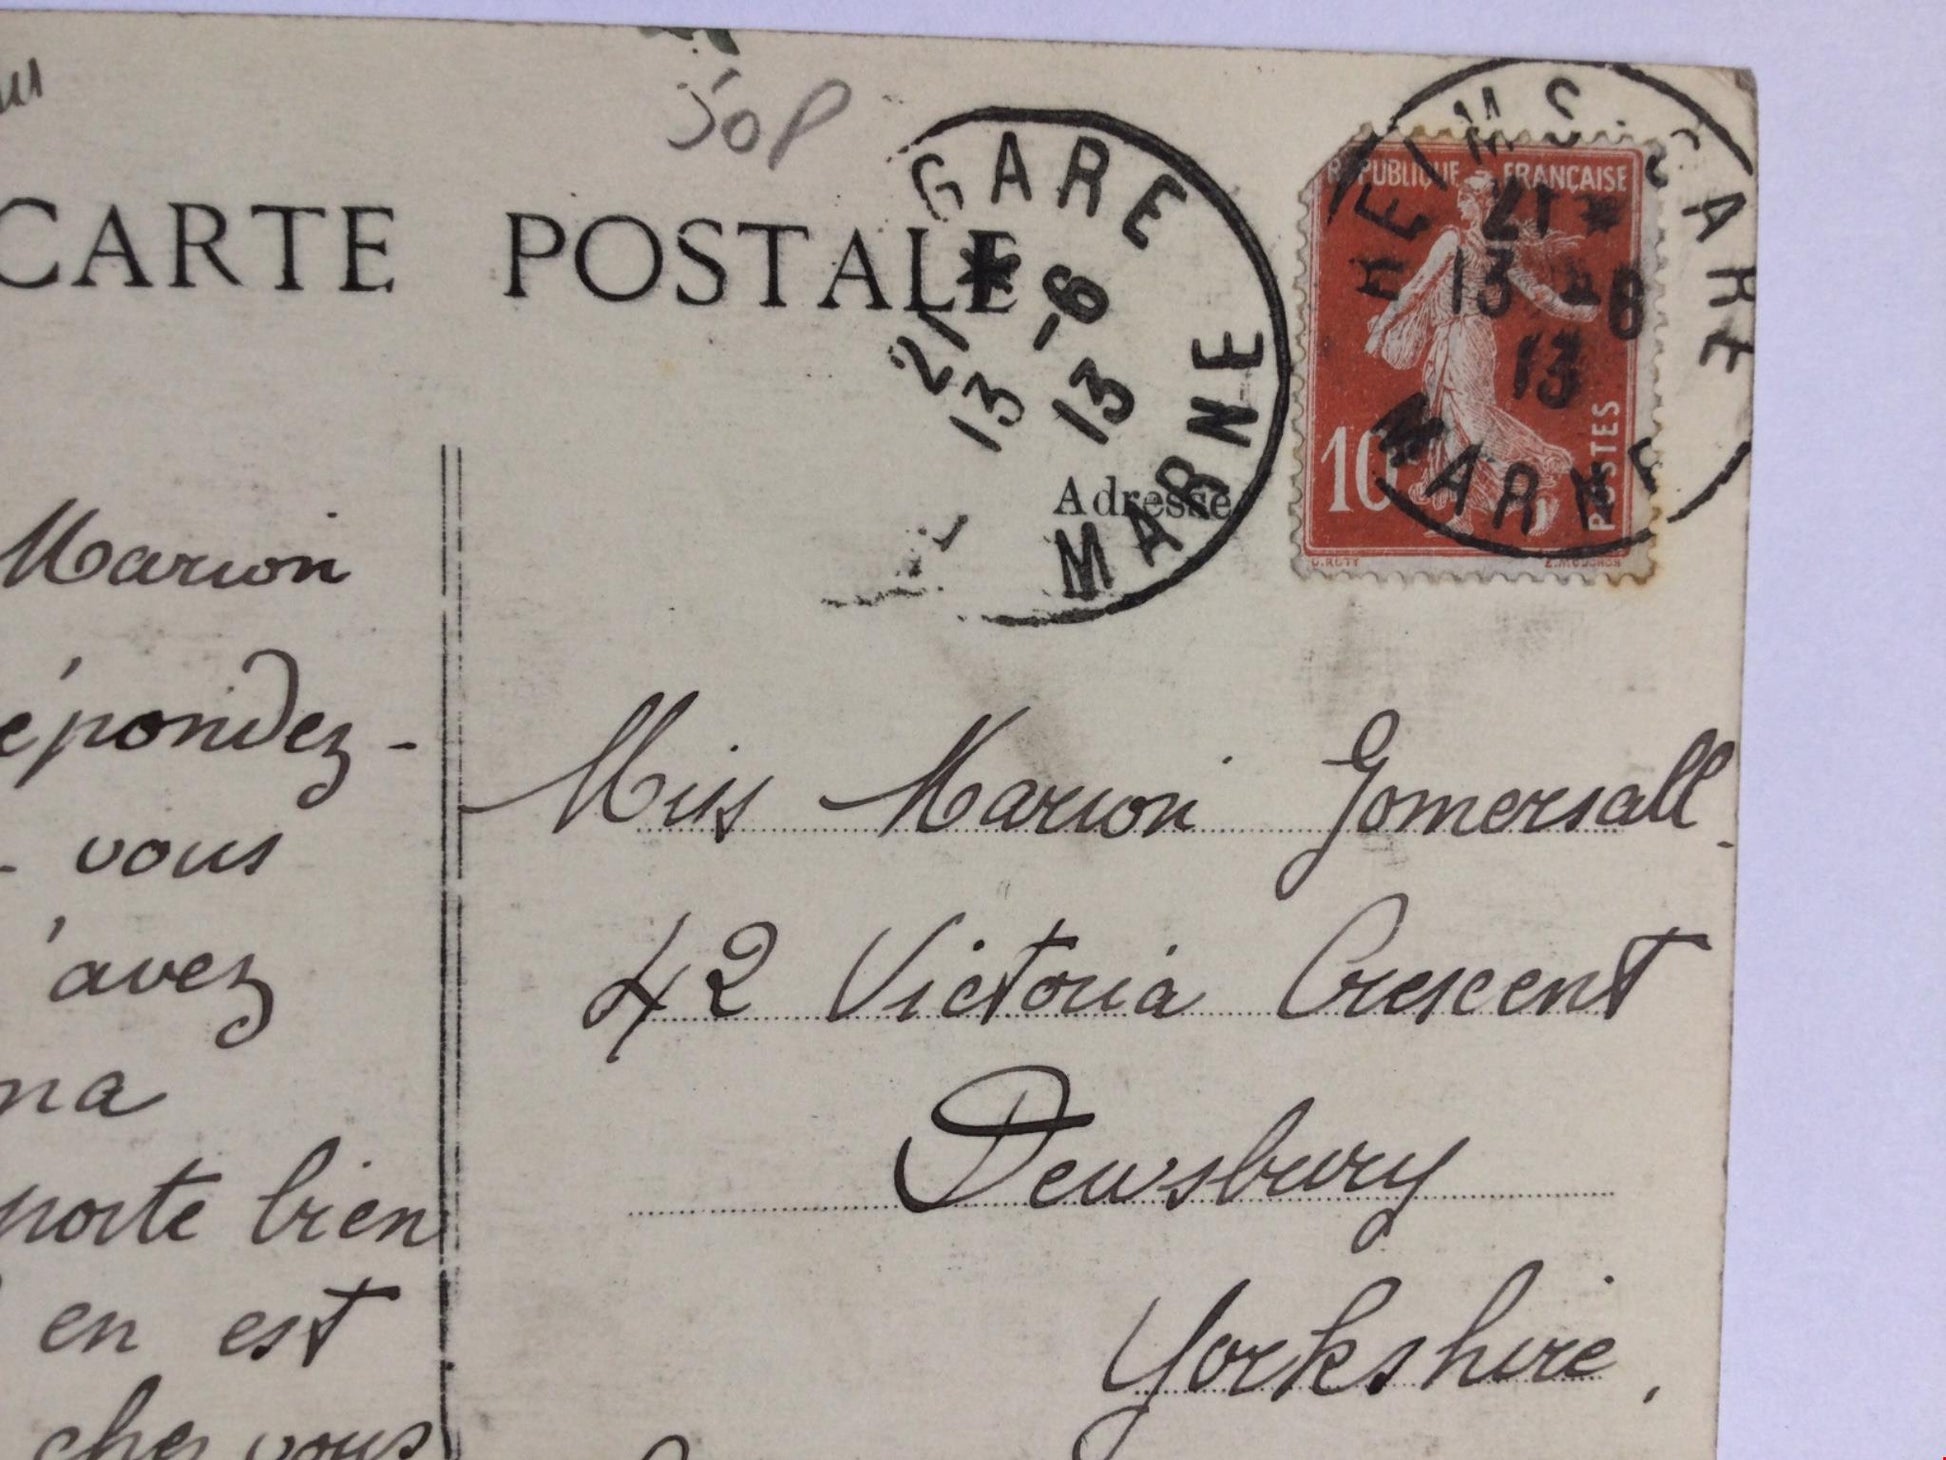 50P
CARTE POSTALE
GARE
MARNE
21 *
13 -6
13
REIMS GARE
MARNE
21 *
13 -6
13
REPUBLIQUE FRANÇAISE
10
POSTES
O. ROTY
E. MOUCHON
Adresse
Marion
épondez-
vous
'avez
na
porte bien
en est
chez vous
Miss Marion Gomersall.
42 Victoria Crescent
Dewsbury
Yorkshire,